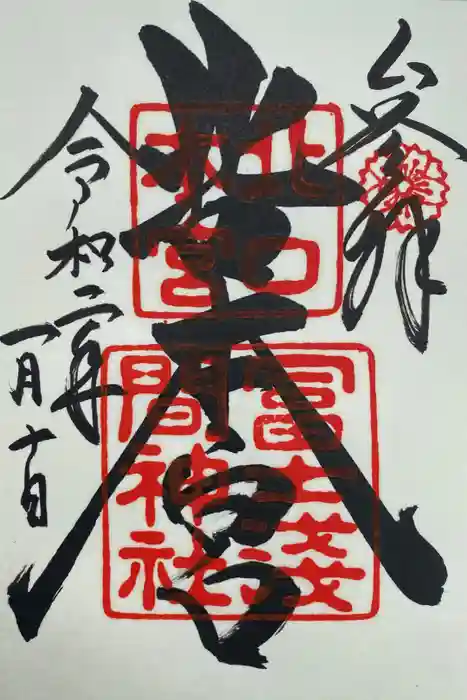 参拝
北口本宮
北口
本宮
冨士淺
間神社
令和二年
一月十日